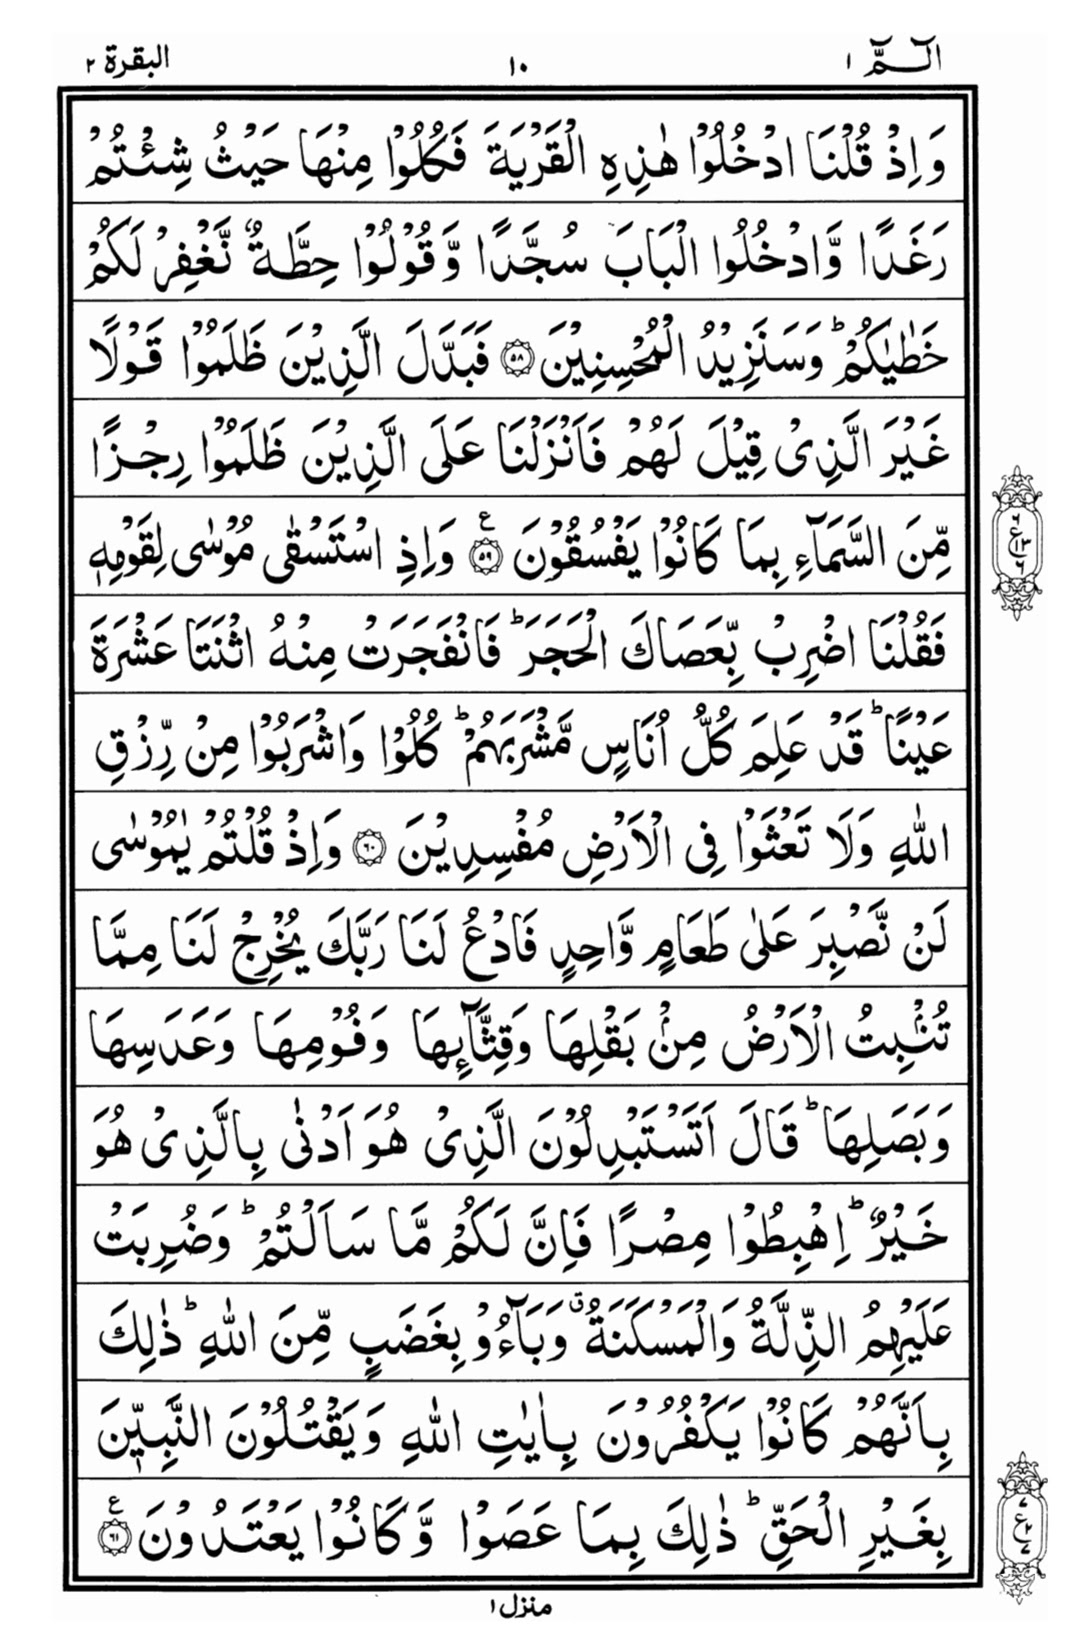 الٓمّٓ ١
١٠
البقرة ٢
وَاِذْ قُلْنَا ادْخُلُوْا هٰذِهِ الْقَرْيَةَ فَكُلُوْا مِنْهَا حَيْثُ شِئْتُمْ
رَغَدًا وَّادْخُلُوا الْبَابَ سُجَّدًا وَّقُوْلُوْا حِطَّةٌ نَّغْفِرْ لَكُمْ
خَطٰيٰكُمْ ؕ وَسَنَزِيْدُ الْمُحْسِنِيْنَ ۝٥٨ فَبَدَّلَ الَّذِيْنَ ظَلَمُوْا قَوْلًا
غَيْرَ الَّذِىْ قِيْلَ لَهُمْ فَاَنْزَلْنَا عَلَى الَّذِيْنَ ظَلَمُوْا رِجْزًا
مِّنَ السَّمَآءِ بِمَا كَانُوْا يَفْسُقُوْنَ ۝٥٩ ع وَاِذِ اسْتَسْقٰى مُوْسٰى لِقَوْمِهٖ
فَقُلْنَا اضْرِبْ بِّعَصَاكَ الْحَجَرَ ؕ فَانْفَجَرَتْ مِنْهُ اثْنَتَا عَشْرَةَ
عَيْنًا ؕ قَدْ عَلِمَ كُلُّ اُنَاسٍ مَّشْرَبَهُمْ ؕ كُلُوْا وَاشْرَبُوْا مِنْ رِّزْقِ
اللّٰهِ وَلَا تَعْثَوْا فِى الْاَرْضِ مُفْسِدِيْنَ ۝٦٠ وَاِذْ قُلْتُمْ يٰمُوْسٰى
لَنْ نَّصْبِرَ عَلٰى طَعَامٍ وَّاحِدٍ فَادْعُ لَنَا رَبَّكَ يُخْرِجْ لَنَا مِمَّا
تُنْۢبِتُ الْاَرْضُ مِنْۢ بَقْلِهَا وَقِثَّآئِهَا وَفُوْمِهَا وَعَدَسِهَا
وَبَصَلِهَا ؕ قَالَ اَتَسْتَبْدِلُوْنَ الَّذِىْ هُوَ اَدْنٰى بِالَّذِىْ هُوَ
خَيْرٌ ؕ اِهْبِطُوْا مِصْرًا فَاِنَّ لَكُمْ مَّا سَاَلْتُمْ ؕ وَضُرِبَتْ
عَلَيْهِمُ الذِّلَّةُ وَالْمَسْكَنَةُ ۗ وَبَآءُوْ بِغَضَبٍ مِّنَ اللّٰهِ ؕ ذٰلِكَ
بِاَنَّهُمْ كَانُوْا يَكْفُرُوْنَ بِاٰيٰتِ اللّٰهِ وَيَقْتُلُوْنَ النَّبِيّٖنَ
بِغَيْرِ الْحَقِّ ؕ ذٰلِكَ بِمَا عَصَوْا وَّكَانُوْا يَعْتَدُوْنَ ۝٦١ ع
٦
ع ١٣
٦
٧
ع ٢
٧
منزل ١